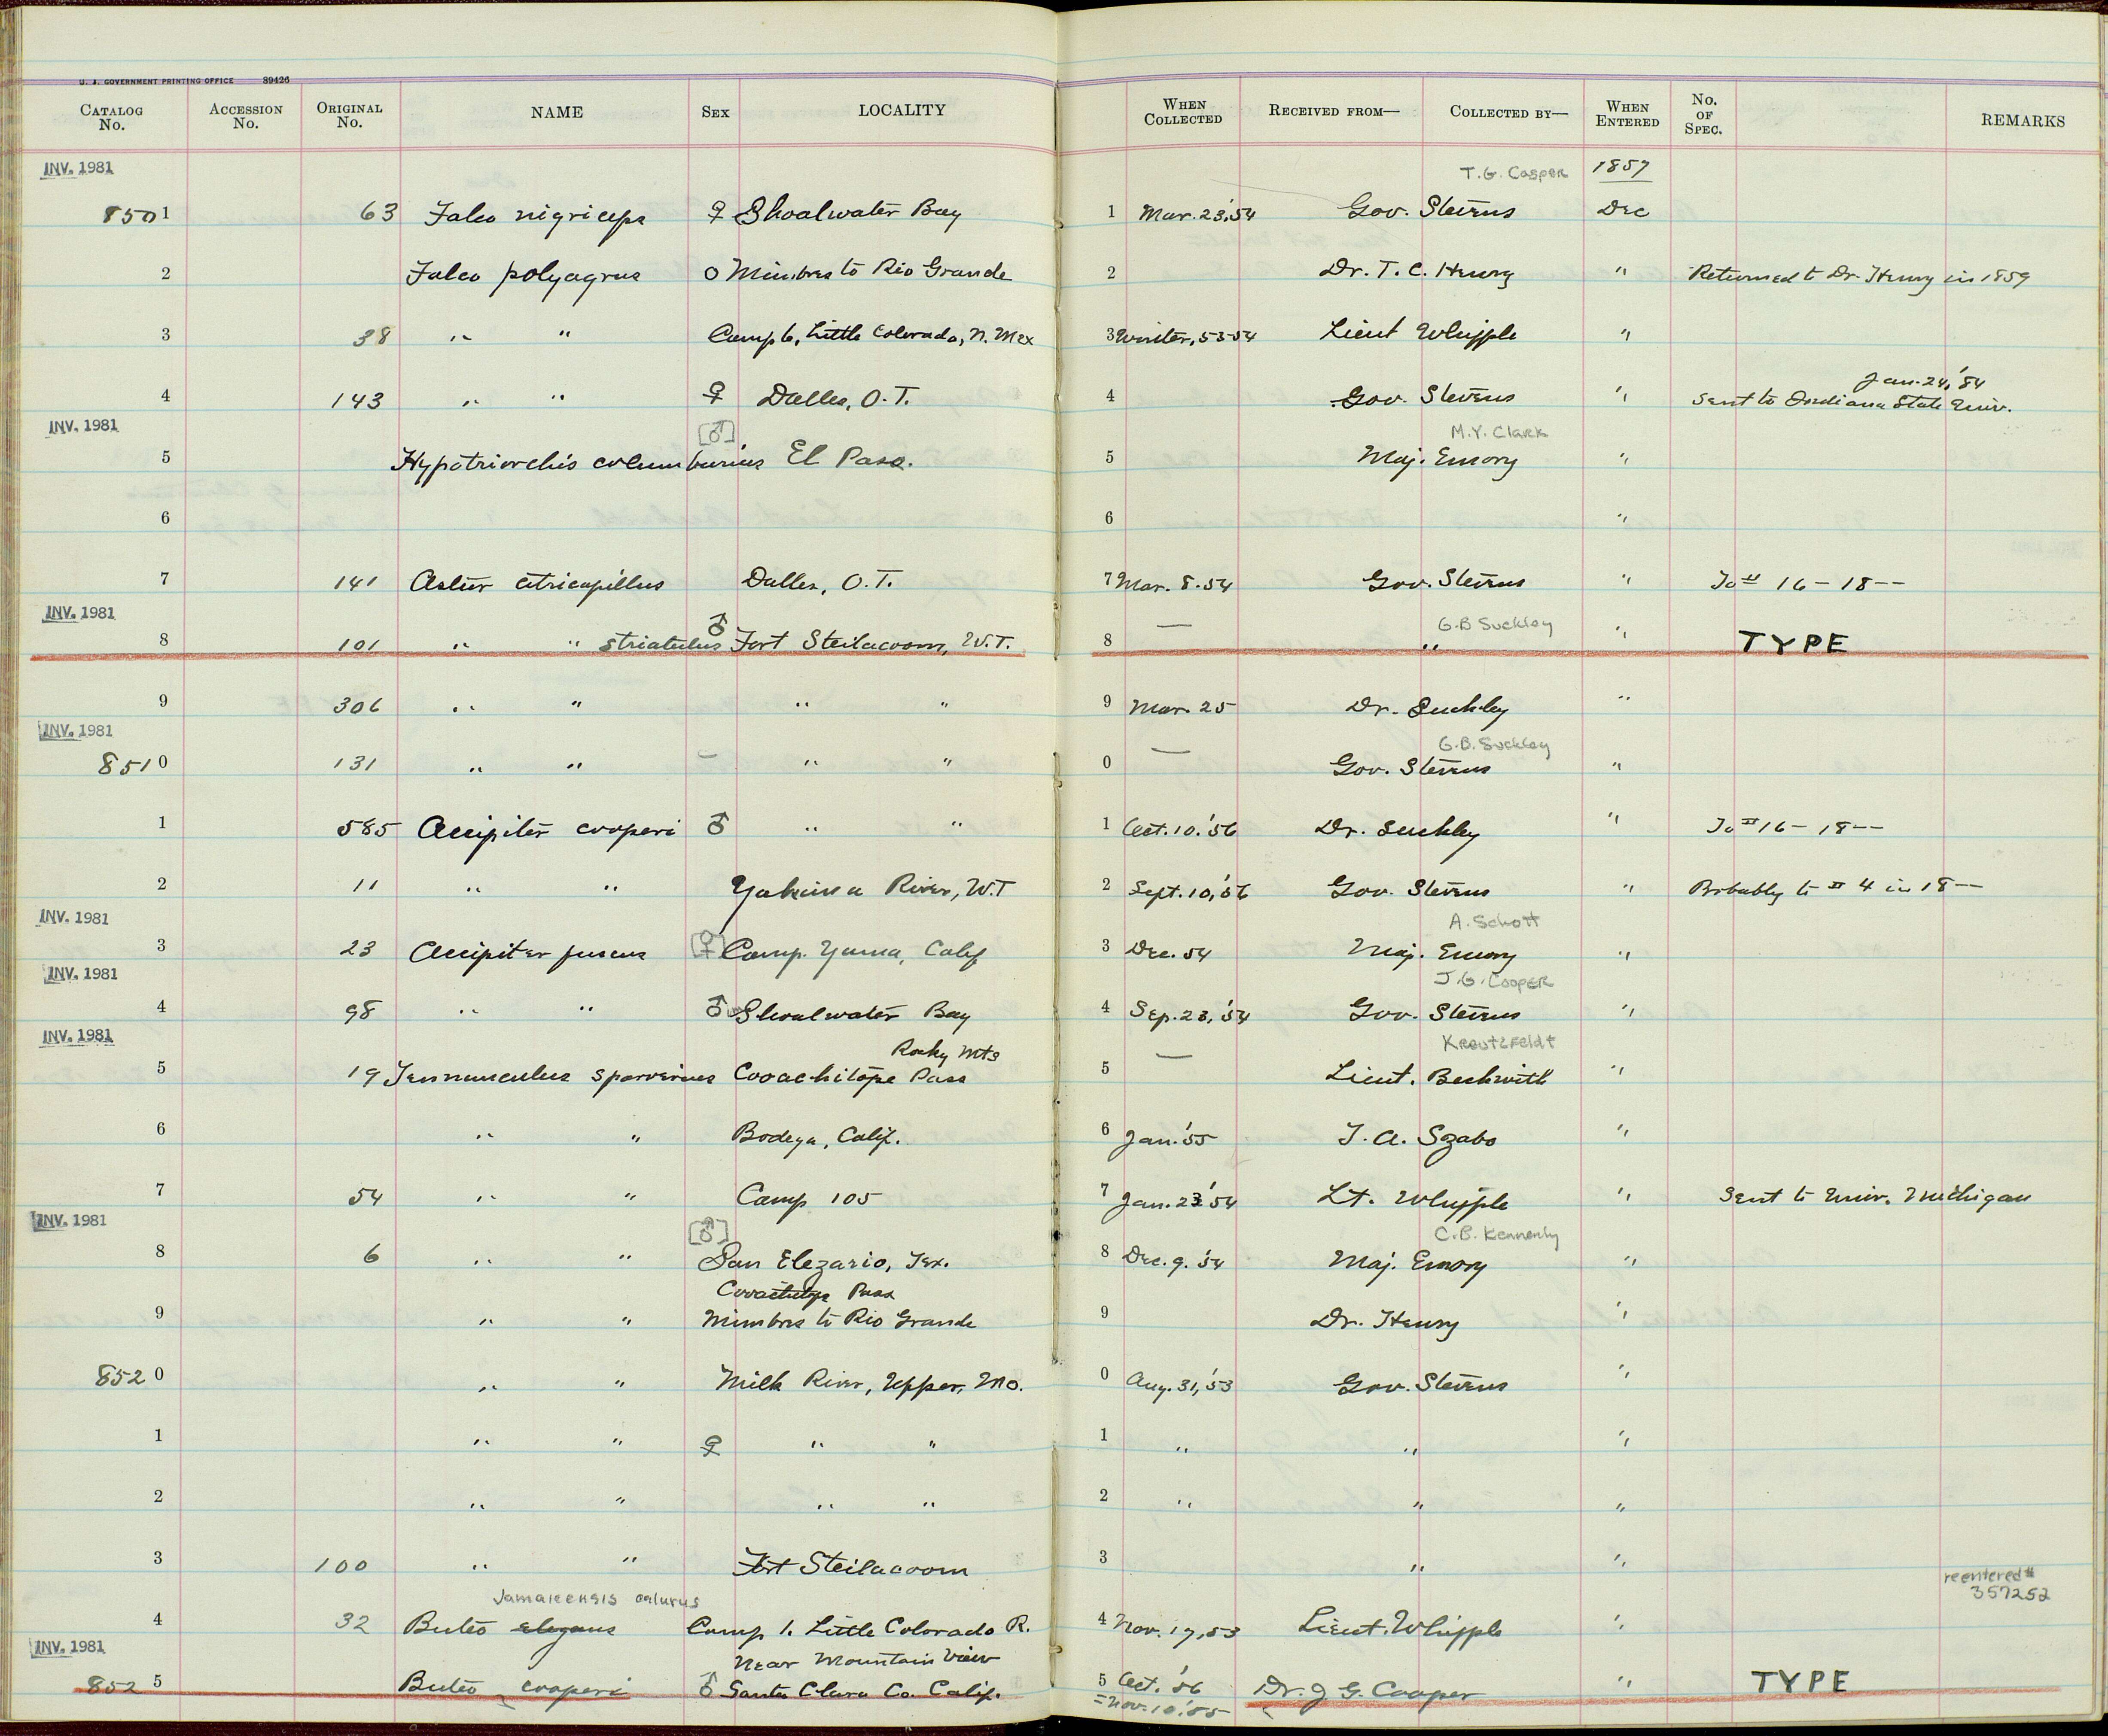 U. S. GOVERNMENT PRINTING OFFICE 89426
CATALOG No. ACCESSION No. ORIGINAL No. NAME SEX LOCALITY WHEN COLLECTED RECEIVED FROM— COLLECTED BY— WHEN ENTERED No. OF SPEC. REMARKS
INV. 1981 T.G. Cooper 1857
8501 63 Falco nigriceps ♀ Shoalwater Bay 1 Mar. 23,'54 Gov. Stevens Dec
2 Falco polyagrus O Mimbres to Rio Grande 2 Dr. T. C. Henry " Returned to Dr. Henry in 1859
3 38 " " Camp 6, Little Colorado, N. Mex 3 Winter, 53-54 Lieut Whipple "
Jan. 24,'84
4 143 " " ♀ Dalles, O.T. 4 Gov. Stevens " Sent to Indiana State Univ.
INV. 1981 [♂] M.Y. Clark
5 Hypotriorchis columbarius El Paso. 5 Maj. Emory "
6 6 "
7 141 Astur atricapillus Dalles, O.T. 7 Mar. 8.54 Gov. Stevens " To 16 - 18--
INV. 1981 ♂ — G.B Suckley
8 101 " " striatulus Fort Steilacoom, W.T. 8 " " TYPE
9 306 " " " " 9 Mar. 25 Dr. Suckley "
INV. 1981 G.B. Suckley
8510 131 " " – " " 0 — Gov. Stevens "
1 585 Accipiter cooperi ♂ " " 1 Oct. 10.'56 Dr. Suckley " To 16 - 18--
2 11 " " Yakima River, W.T 2 Sept. 10,'56 Gov. Stevens " Probably to 4 in 18--
INV. 1981 A. Schott
3 23 Accipiter fuscus [♀] Camp. Yuma, Calif 3 Dec. 54 Maj. Emory "
INV. 1981 J.G. Cooper
4 98 " " ♂ Shoalwater Bay 4 Sep. 23,'54 Gov. Stevens "
INV. 1981 Rocky Mts — Kreutzfeldt
5 19 Tennunculus sparverius Cooachitope Pass 5 Lieut. Beckwith "
6 " " Bodega, Calif. 6 Jan.'55 T. A. Szabo "
7 54 " " Camp 105 7 Jan. 23'54 Lt. Whipple " Sent to Univ. Michigan
INV. 1981 [♂] C.B. Kennerly
8 6 " " San Elezario, Tex. 8 Dec. 9.'54 Maj. Emory "
Cooachetope Pass
9 " " Mimbres to Rio Grande 9 Dr. Henry "
8520 " " Milk River, Upper, Mo. 0 Aug. 31,'53 Gov. Stevens "
1 " " ♀ " " 1 " " "
2 " " " " 2 " " "
3 100 " " Fort Steilacoom 3 " "
Jamaicensis calurus reentered # 357252
4 32 Buteo elegans Camp 1. Little Colorado R. 4 Nov. 17,53 Lieut. Whipple "
INV. 1981 Near Mountain View
8525 Buteo cooperi ♂ Santa Clara Co. Calif. 5 Oct.'56 Dr. J G. Cooper " TYPE
= Nov. 10,'55